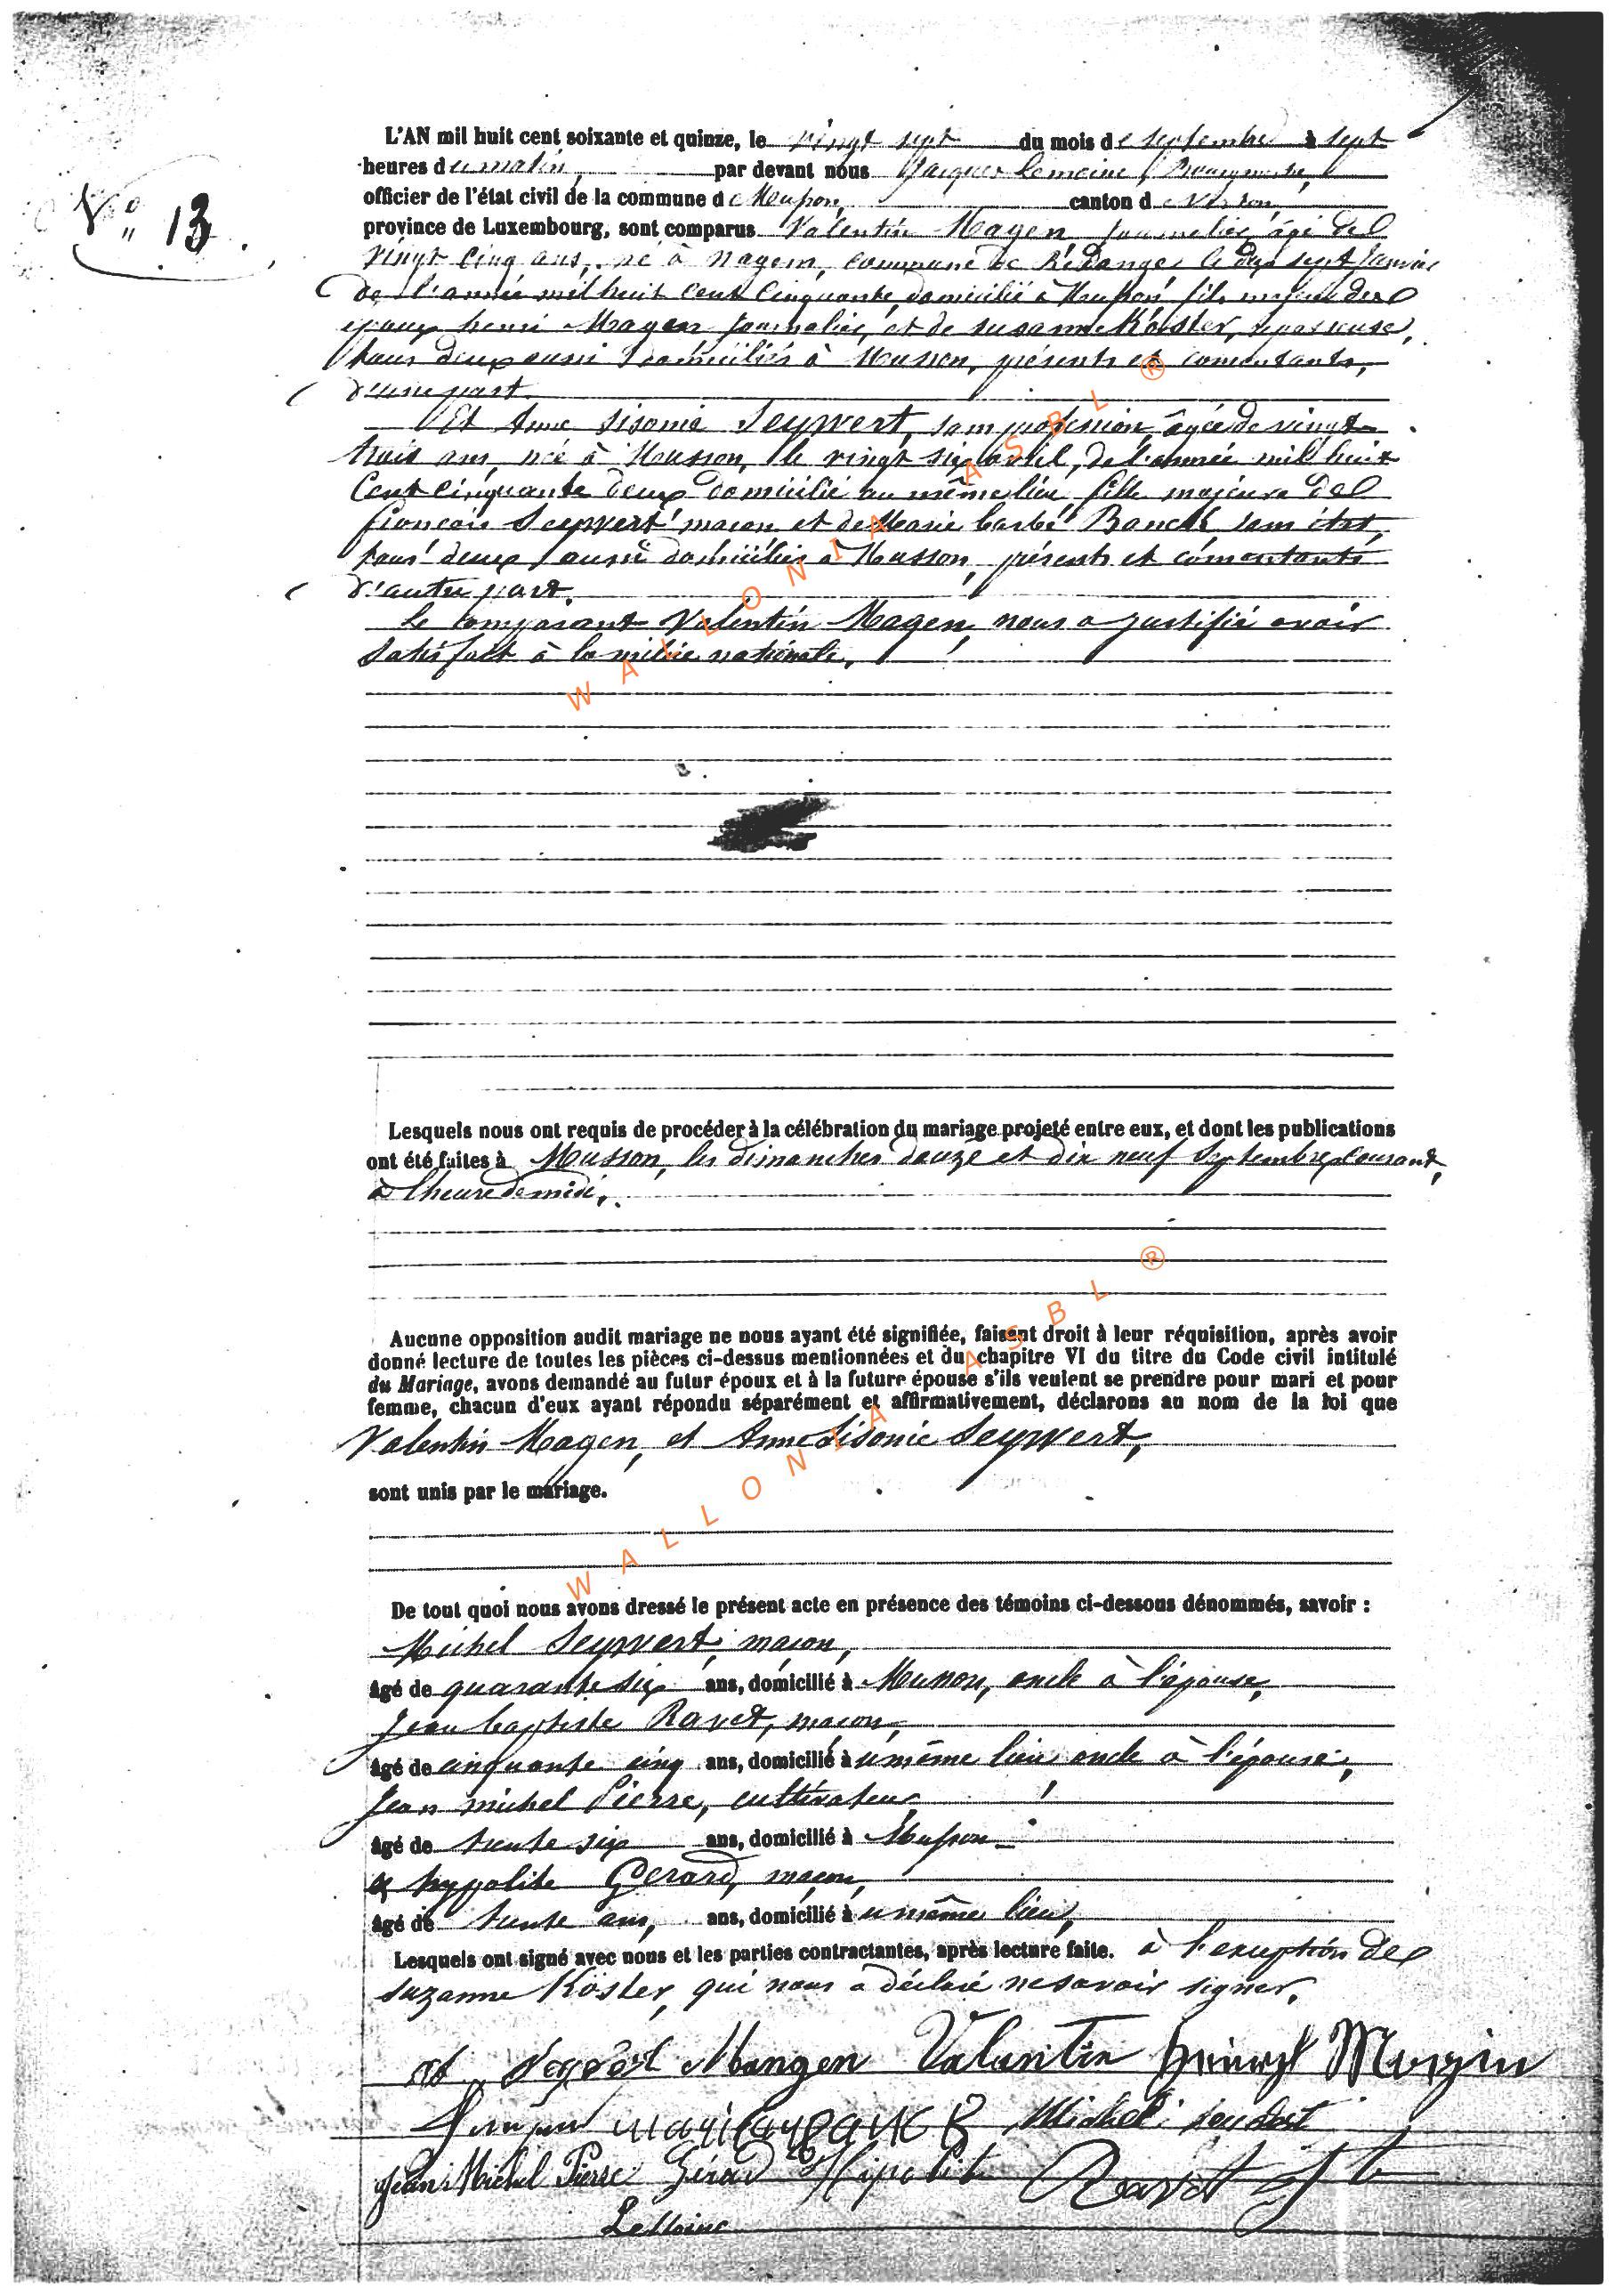 N° 13.
L'AN mil huit cent soixante et quinze, le vingt sept du mois de septembre à sept
heures du matin, par devant nous Jacques Lemoine, Bourgmestre,
officier de l'état civil de la commune de Musson, canton de Virton,
province de Luxembourg, sont comparus Valentin Magen, journalier, âgé de
vingt cinq ans, né à Nagem, commune de Rédange, le dix sept Janvier
de l'année mil huit cent cinquante, domicilié à Musson, fils majeur des
époux henri Magen journalier, et de susanne Köster,
tous deux aussi domiciliés à Musson, présents et consentants,
d'une part.
Et Anne Sisonie Seywert, sans profession, âgée de vingt
trois ans, née à Musson, le vingt six avril, de l'année mil huit
cent cinquante deux domicilié au même lieu, fille majeure de
françois Seywert maçon et de Marie barbe Banck sans état,
tous deux aussi domiciliés à Musson, présents et consentants
d'autre part.
Le comparant Valentin Magen, nous a justifié avoir
satisfait à la milice nationale.
Lesquels nous ont requis de procéder à la célébration du mariage projeté entre eux, et dont les publications
ont été faites à Musson, les dimanches douze et dix neuf Septembre courant,
à l'heure de midi.
Aucune opposition audit mariage ne nous ayant été signifiée, faisant droit à leur réquisition, après avoir
donné lecture de toutes les pièces ci-dessus mentionnées et du chapitre VI du titre du Code civil intitulé
du Mariage, avons demandé au futur époux et à la future épouse s'ils veulent se prendre pour mari et pour
femme, chacun d'eux ayant répondu séparément et affirmativement, déclarons au nom de la loi que
Valentin Magen, et Anne Sisonie Seywert,
sont unis par le mariage.
De tout quoi nous avons dressé le présent acte en présence des témoins ci-dessous dénommés, savoir :
Michel Seywert, maçon,
âgé de quarante six ans, domicilié à Musson, oncle à l'épouse,
Jean baptiste Ravet, maçon,
âgé de cinquante cinq ans, domicilié à u même lieu oncle à l'épouse,
Jean michel Pierre, cultivateur,
âgé de trente six ans, domicilié à Musson
et hypolite Gerard, maçon,
âgé de trente ans, ans, domicilié à u même lieu,
Lesquels ont signé avec nous et les parties contractantes, après lecture faite. à l'exception de
suzanne Köster, qui nous a déclaré ne savoir signer.
Mangen Valantin
Michel
Jean Michel Pierre Gérard Hipolite Ravet
Lemoine
WALLONIA ASBL ®
WALLONIA ASBL ®